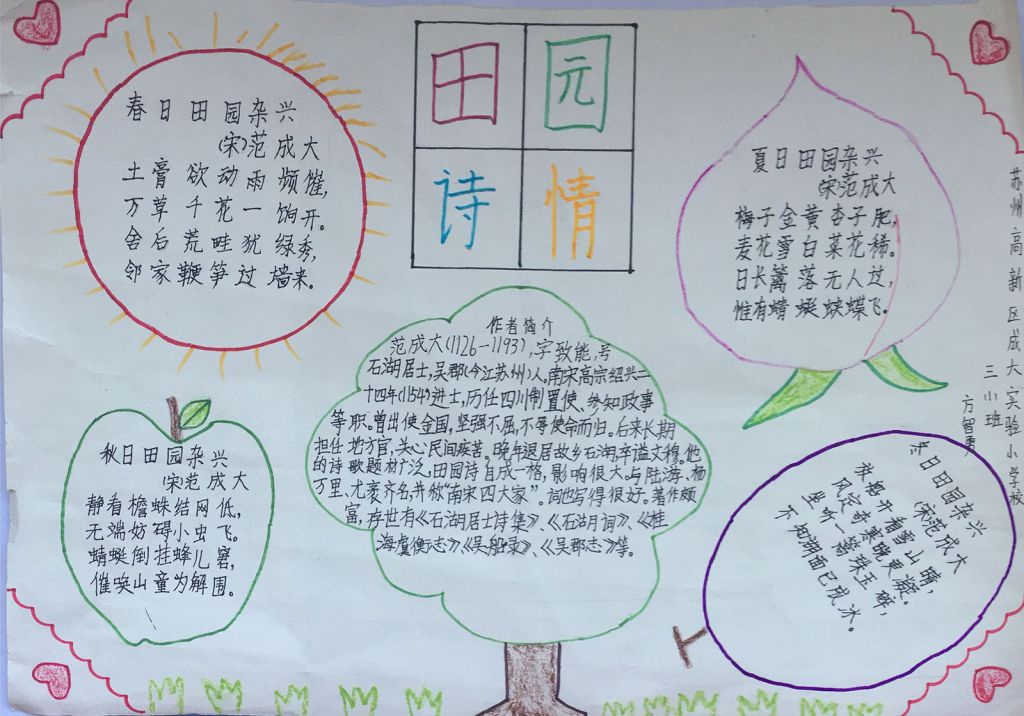 田园
诗情
春日田园杂兴
(宋)范成大
土膏欲动雨频催,
万草千花一饷开。
舍后荒畦犹绿秀,
邻家鞭笋过墙来。
夏日田园杂兴
(宋)范成大
梅子金黄杏子肥,
麦花雪白菜花稀。
日长篱落无人过,
惟有蜻蜓蛱蝶飞。
苏州高新区成大实验小学校
三小班
方智勇
作者简介
范成大(1126-1193),字致能,号
石湖居士,吴郡(今江苏州)人。南宋高宗绍兴二
十四年(1154)进士,历任四川制置使、参知政事
等职。曾出使金国,坚强不屈,不辱使命而归。后来长期
担任地方官,关心民间疾苦。晚年退居故乡石湖,卒谥文穆。他
的诗歌题材广泛,田园诗自成一格,影响很大。与陆游、杨
万里、尤袤齐名,并称“南宋四大家”。词也写得很好。著作颇
富,存世有《石湖居士诗集》、《石湖词》、《桂
海虞衡志》、《吴船录》、《吴郡志》等。
秋日田园杂兴
(宋)范成大
静看檐蛛结网低,
无端妨碍小虫飞。
蜻蜓倒挂蜂儿窘,
催唤山童为解围。
冬日田园杂兴
(宋)范成大
放船开看雪山晴,
风定奇寒晚更凝。
坐听一篙珠玉碎,
不知湖面已成冰。